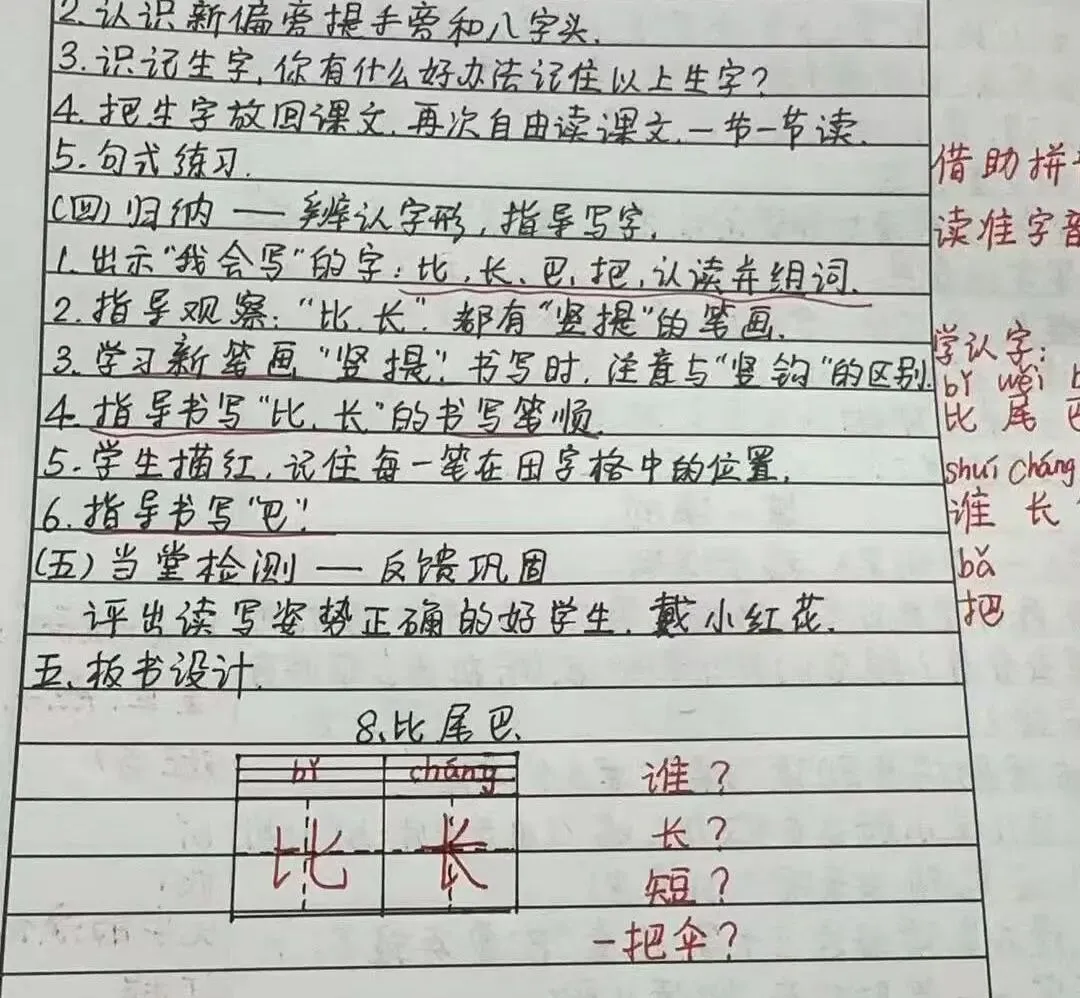 2.认识新偏旁提手旁和八字头.
3.识记生字,你有什么好办法记住以上生字?
4.把生字放回课文.再次自由读课文.一节一节读.
5.句式练习.
(四)归纳——辨认字形,指导写字.
1.出示"我会写"的字:比.长.巴.把.认读并组词.
2.指导观察:"比.长".都有"竖提"的笔画.
3.学习新笔画"竖提".书写时.注意与"竖钩"的区别.
4.指导书写"比.长"的书写笔顺.
5.学生描红.记住每一笔在田字格中的位置.
6.指导书写"巴".
(五)当堂检测——反馈巩固
评出读写姿势正确的好学生.戴小红花.
五.板书设计.
8.比尾巴.
bǐ cháng
比 长
谁?
长?
短?
一把伞?
借助拼
读准字音
学认字:
bǐ wěi b
比 尾 巴
shuí cháng
谁 长
bǎ
把